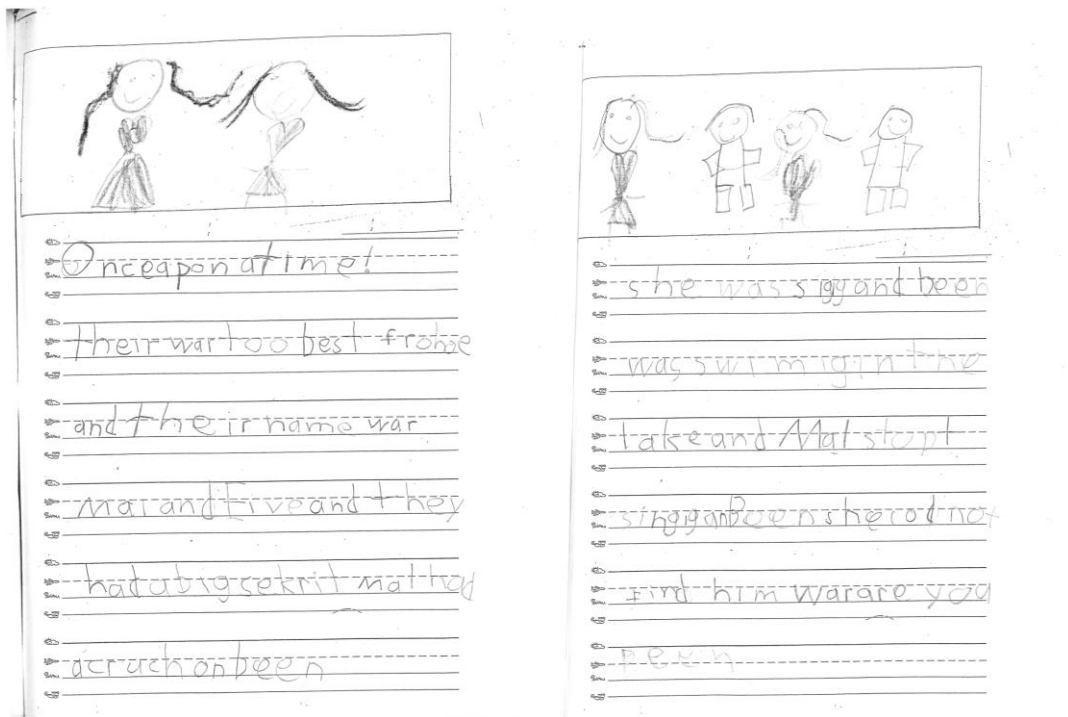 Onceapon atime!
their war too best
and their name war
Mai and Five and they
had a big sekrit mat had
acruch on been
she was sigg and been
was swimig in the
take and Mat stopt
singig an Been she cod not
find him Warare you